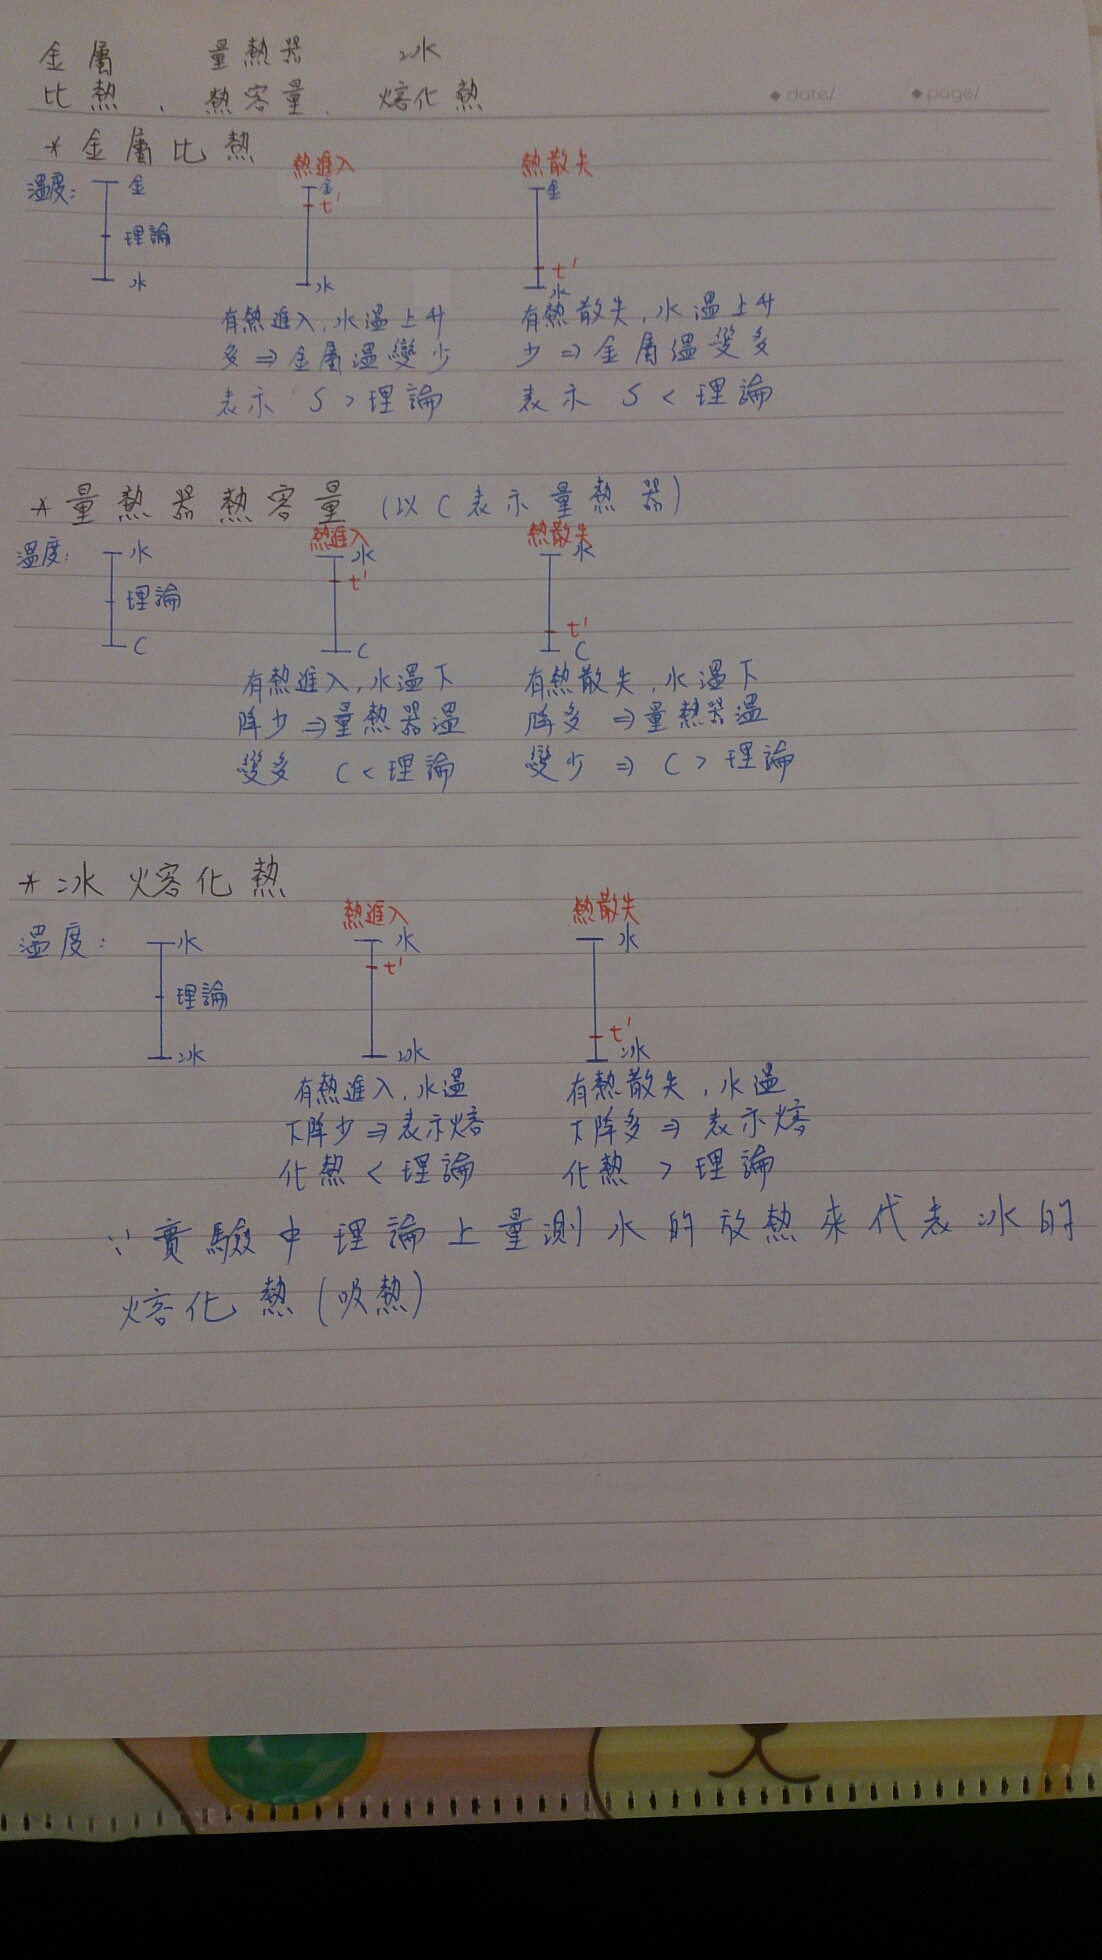 金屬 量熱器 冰
比熱、熱容量、熔化熱
◆ date/ ◆ page/
* 金屬比熱
熱進入 熱散失
溫度: 金 金 金
t'
理論
t'
水 水 水
有熱進入,水溫上升 有熱散失,水溫上升
多⇒金屬溫變少 少⇒金屬溫變多
表示 S>理論 表示 S<理論
* 量熱器熱容量 (以C表示量熱器)
熱進入 熱散失
溫度: 水 水 水
t'
理論
t'
C C C
有熱進入,水溫下 有熱散失,水溫下
降少⇒量熱器溫 降多⇒量熱器溫
變多 C<理論 變少⇒ C>理論
* 冰熔化熱
熱進入 熱散失
溫度: 水 水 水
t'
理論
t'
冰 冰 冰
有熱進入,水溫 有熱散失,水溫
下降少⇒表示熔 下降多⇒表示熔
化熱<理論 化熱>理論
∵實驗中理論上量測水的放熱來代表冰的
熔化熱(吸熱)